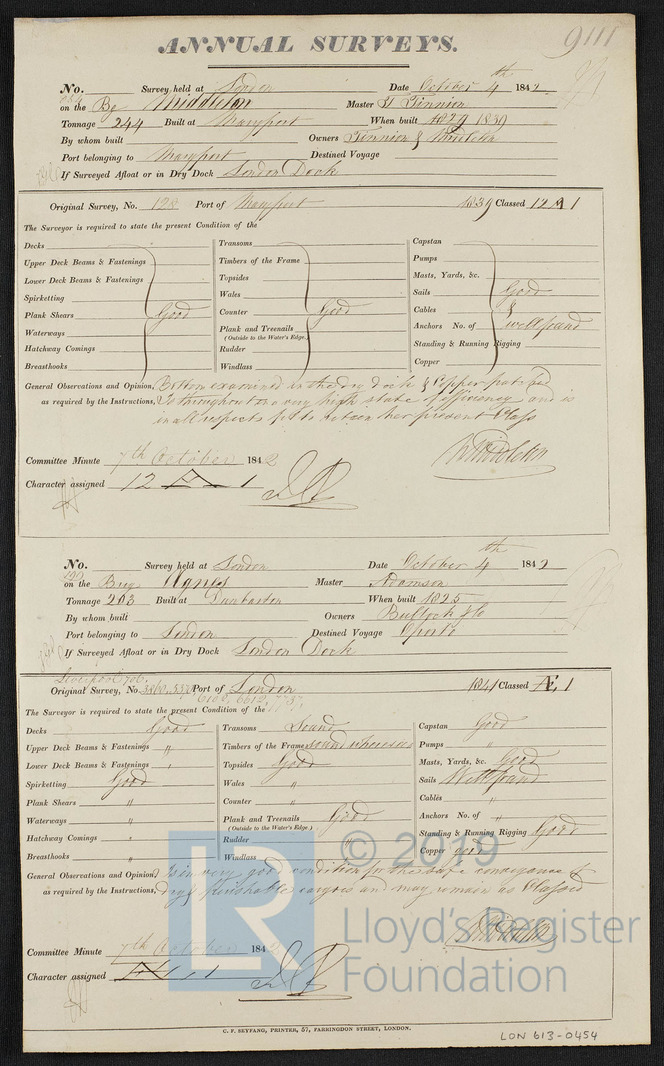 9111
ANNUAL SURVEYS.
No. Survey held at London Date October 4th 1842
on the Bg Middleton Master
Tonnage 244 Built at Maryport When built 1839
By whom built Owners &
Port belonging to Maryport Destined Voyage
If Surveyed Afloat or in Dry Dock London Dock
Original Survey, No. 128 Port of Maryport 1839 Classed 12 A 1
The Surveyor is required to state the present Condition of the
Decks Transoms Capstan
Upper Deck Beams & Fastenings Timbers of the Frame Pumps
Lower Deck Beams & Fastenings Topsides Masts, Yards, &c.
Spirketting Wales Sails Good
Plank Shears Good Counter Good Cables &
Waterways Plank and Treenails (Outside to the Water's Edge.) Anchors No. of well found
Hatchway Comings Rudder Standing & Running Rigging
Breasthooks Windlass Copper
General Observations and Opinion, Bottom examined in the dry dock & Copper patched
as required by the Instructions, Is throughout in a very high state of efficiency and is
in all respects fit to retain her present Class
Middleton
Committee Minute 7th October 1842
Character assigned 12 A 1
No. Survey held at London Date October 4th 1842
190 on the Brig Agnes Master Adamson
Tonnage 203 Built at Dunbarton When built 1825
By whom built Owners Bullock & Co
Port belonging to London Destined Voyage Oporto
If Surveyed Afloat or in Dry Dock London Dock
Liverpool 706
Original Survey, No. Port of London 1841 Classed Æ 1
The Surveyor is required to state the present Condition of the
Decks Good Transoms Sound Capstan Good
Upper Deck Beams & Fastenings " Timbers of the Frame Sound Pumps "
Lower Deck Beams & Fastenings " Topsides Good Masts, Yards, &c. Good
Spirketting Good Wales " Sails Well found
Plank Shears " Counter " Cables "
Waterways " Plank and Treenails Good (Outside to the Water's Edge.) Anchors No. of "
Hatchway Comings " Rudder " Standing & Running Rigging Good
Breasthooks " Windlass Copper good
General Observations and Opinion, Is in very good condition for the safe conveyance of
as required by the Instructions, dry & perishable cargoes and may remain as Classed
Middleton
Committee Minute 7th October 1842
Character assigned Æ 1
C. F. SEYFANG, PRINTER, 57, FARRINGDON STREET, LONDON.
LON 613-0454
LR © 2019
Lloyd's Register
Foundation